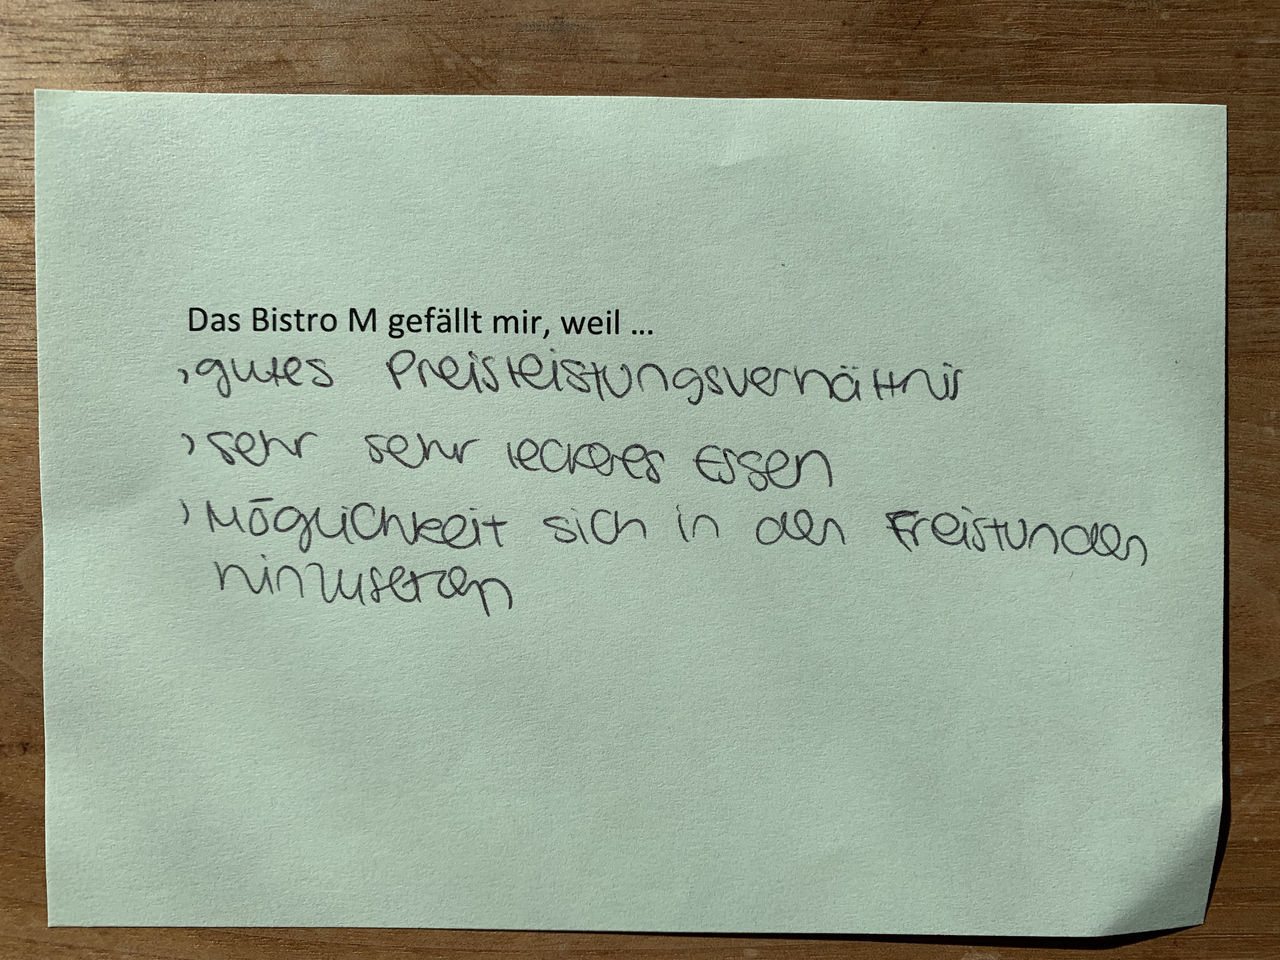 Das Bistro M gefällt mir, weil ...
, gutes Preisleistungsverhältnis
, sehr sehr leckeres Essen
, Möglichkeit sich in den Freistunden
hinzusetzen